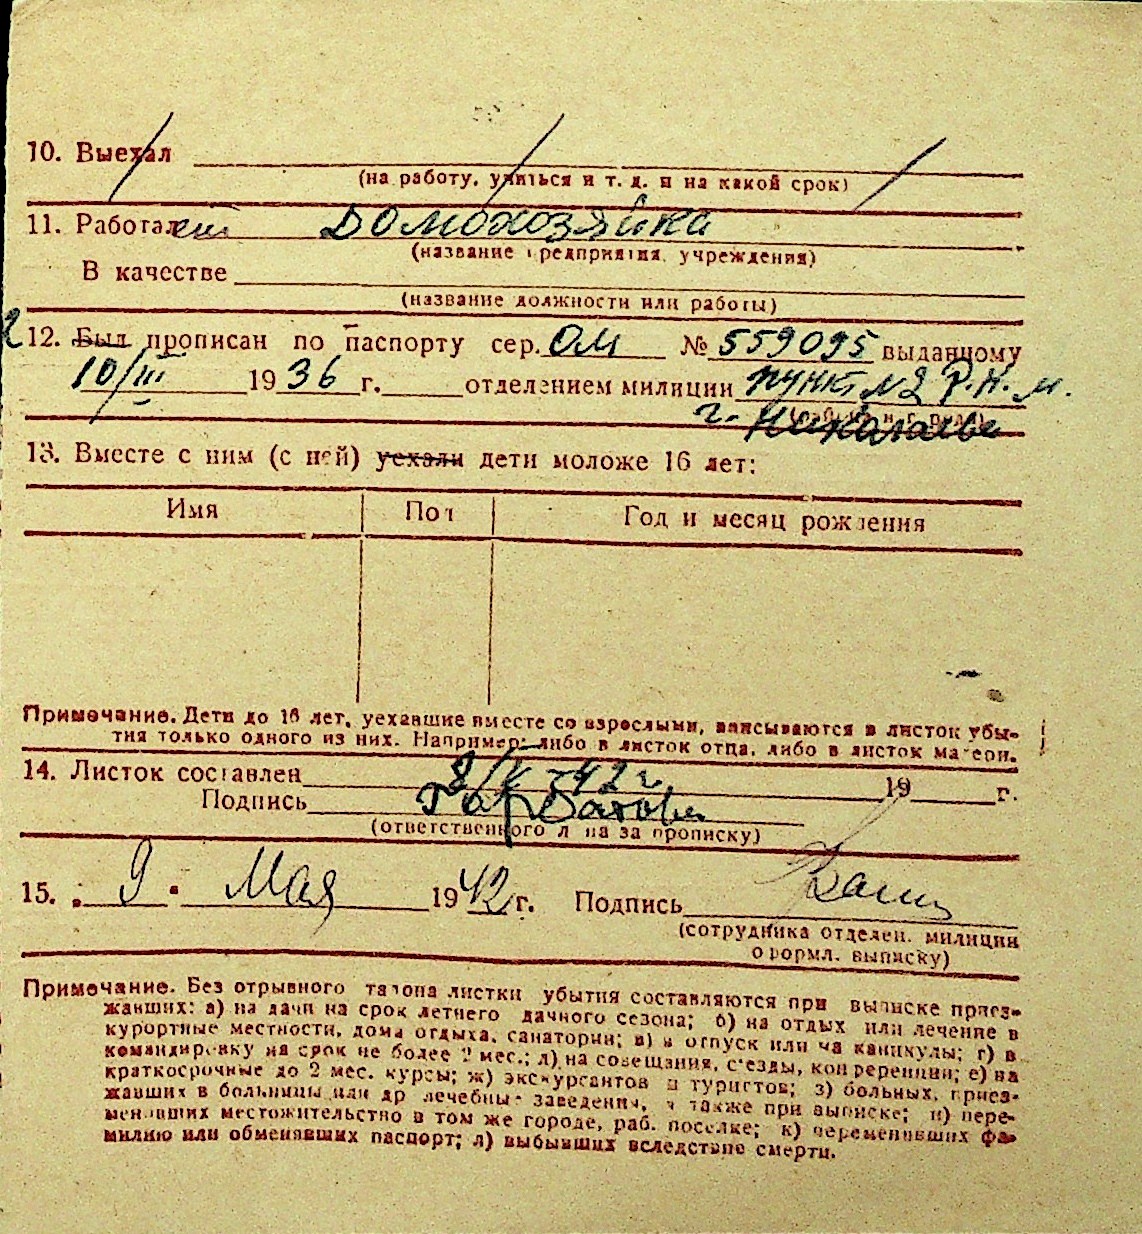 10. Выехал
(на работу, учиться и т. д. и на какой срок)
11. Работает Домохозяйка
(название предприятия, учреждения)
В качестве
(название должности или работы)
12. Был прописан по паспорту сер. ОМ № 559095 выданному
10/III 1936 г. отделением милиции пункт №2 Р.К.М.
г. Николаева
13. Вместе с ним (с ней) уехали дети моложе 16 лет:
Имя Пол Год и месяц рождения
Примечание. Дети до 16 лет, уехавшие вместе со взрослыми, вписываются в листок убы-
тия только одного из них. Например: либо в листок отца, либо в листок матери.
14. Листок составлен 9/V-42 г. 19 г.
Подпись
(ответственного лица за прописку)
15. 9. Мая 1942 г. Подпись
(сотрудника отделен. милиции
оформл. выписку)
Примечание. Без отрывного талона листки убытия составляются при выписке приез-
жавших: а) на дачи на срок летнего дачного сезона; б) на отдых или лечение в
курортные местности, дома отдыха, санатории; в) в отпуск или на каникулы; г) в
командировку на срок не более 2 мес.; д) на совещания, с'езды, конференции; е) на
краткосрочные до 2 мес. курсы; ж) экскурсантов и туристов; з) больных, приез-
жавших в больницы или др лечебные заведения, а также при выписке; и) пере-
менивших местожительство в том же городе, раб. поселке; к) переменивших фа-
милию или обменявших паспорт; л) выбывших вследствие смерти.